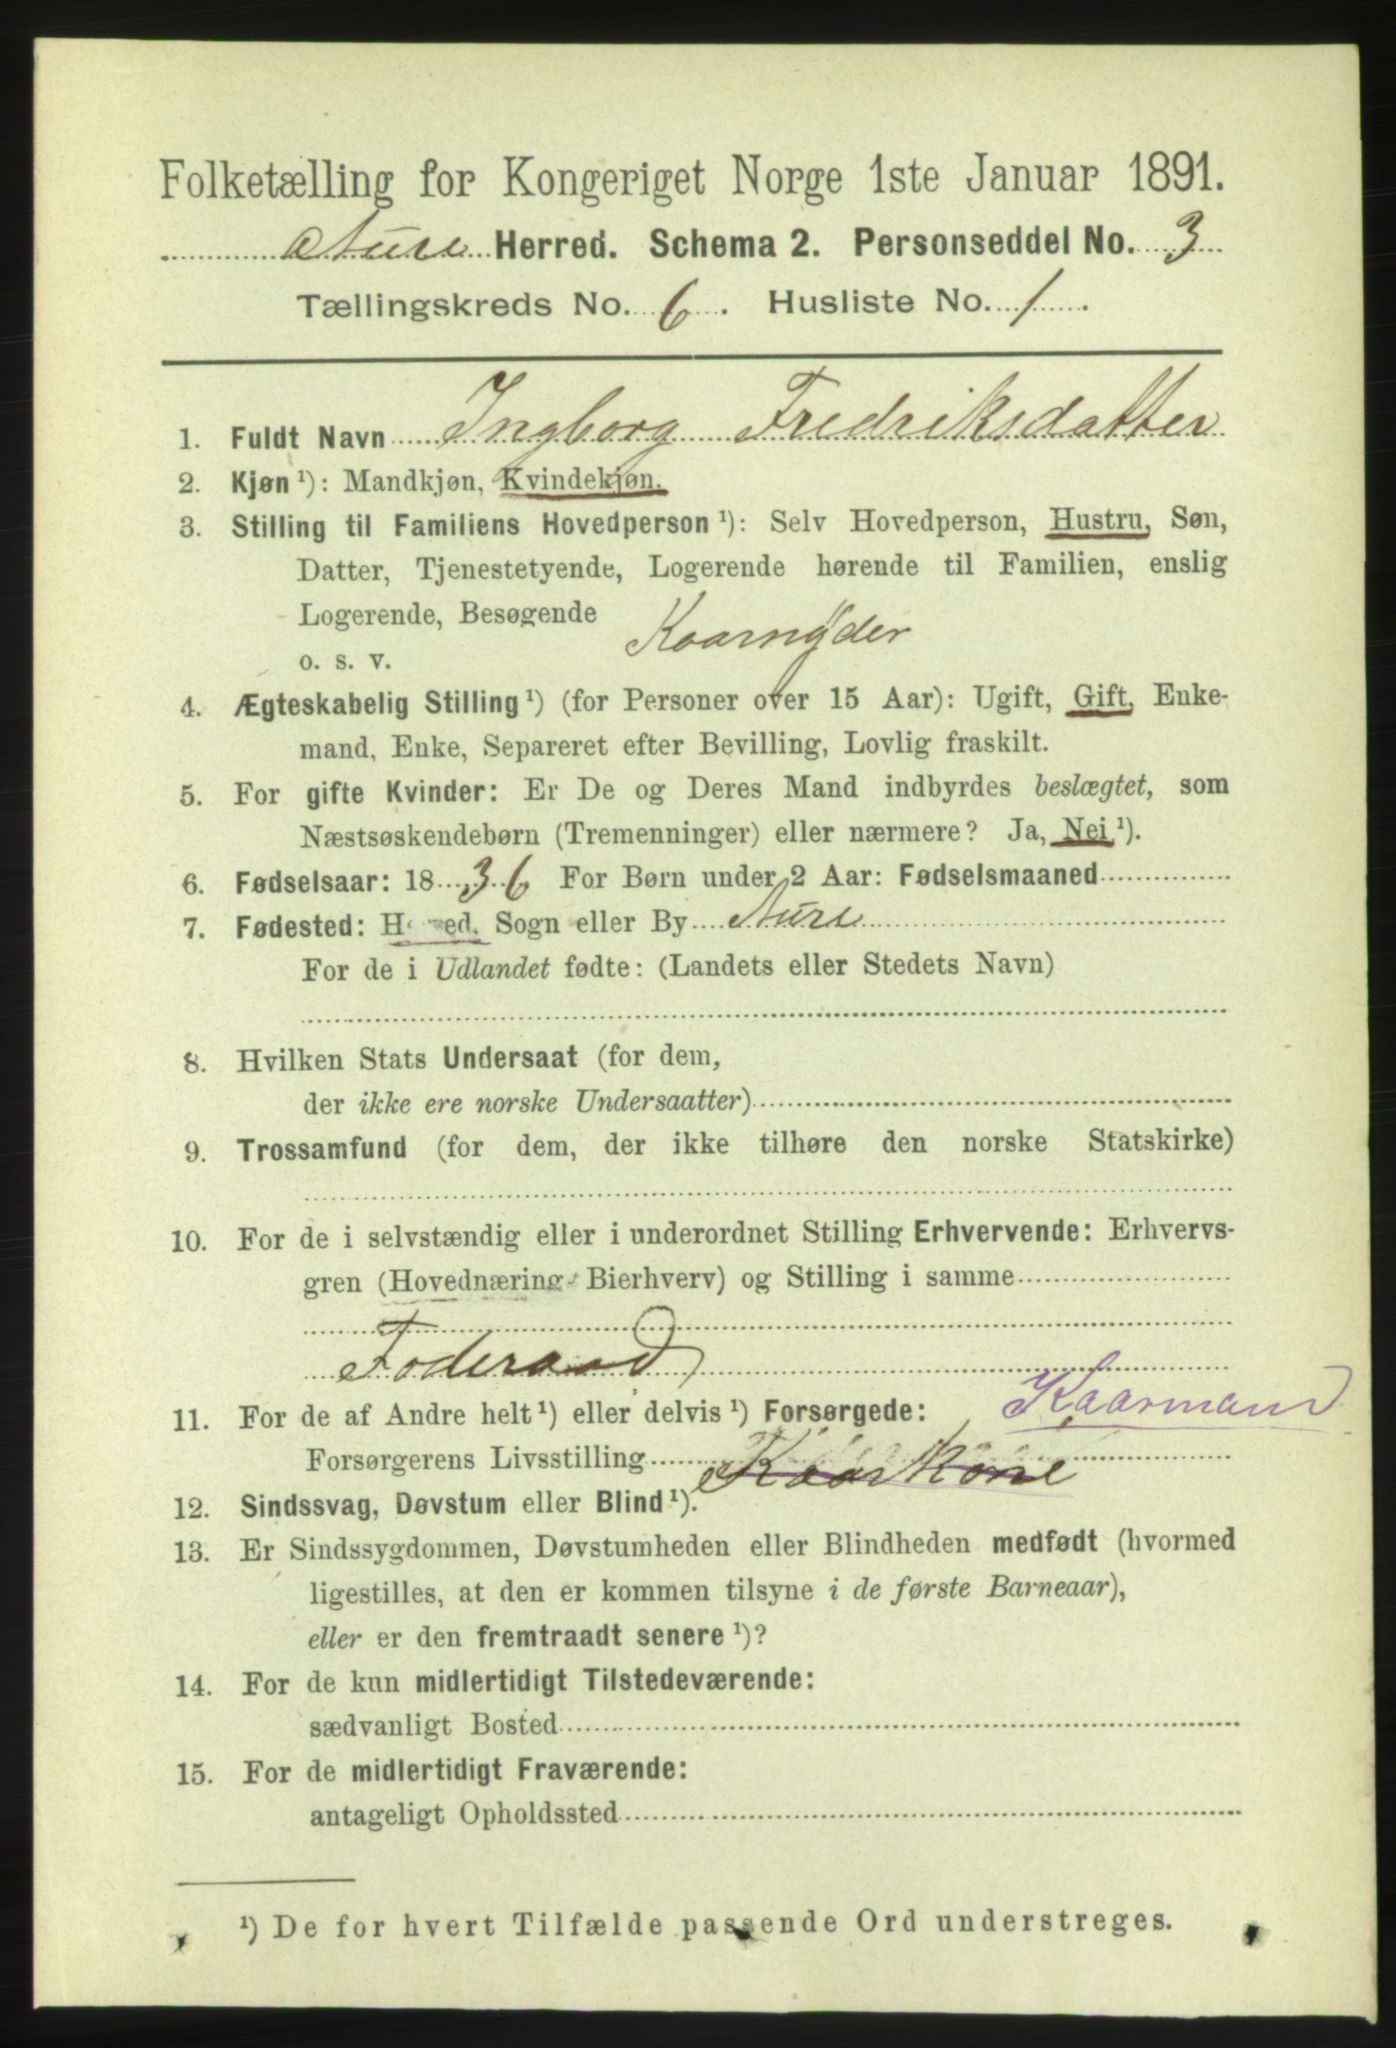 Folketælling for Kongeriget Norge 1ste Januar 1891.
Aure Herred. Schema 2. Personseddel No. 3
Tællingskreds No. 6. Husliste No. 1.
1. Fuldt Navn Ingborg Fredriksdatter
2. Kjøn ¹): Mandkjøn, Kvindekjøn.
3. Stilling til Familiens Hovedperson ¹): Selv Hovedperson, Hustru, Søn,
Datter, Tjenestetyende, Logerende hørende til Familien, enslig
Logerende, Besøgende
o. s. v. Kaarnyder
4. Ægteskabelig Stilling ¹) (for Personer over 15 Aar): Ugift, Gift, Enke-
mand, Enke, Separeret efter Bevilling, Lovlig fraskilt.
5. For gifte Kvinder: Er De og Deres Mand indbyrdes beslægtet, som
Næstsøskendebørn (Tremenninger) eller nærmere? Ja, Nei ¹).
6. Fødselsaar: 1836 For Børn under 2 Aar: Fødselsmaaned
7. Fødested: Herred, Sogn eller By Aure
For de i Udlandet fødte: (Landets eller Stedets Navn)
8. Hvilken Stats Undersaat (for dem,
der ikke ere norske Undersaatter)
9. Trossamfund (for dem, der ikke tilhøre den norske Statskirke)
10. For de i selvstændig eller i underordnet Stilling Erhvervende: Erhvervs-
gren (Hovednæring, Bierhverv) og Stilling i samme
Foderaad
11. For de af Andre helt ¹) eller delvis ¹) Forsørgede: Kaarmand
Forsørgerens Livsstilling Kaarkone
12. Sindssvag, Døvstum eller Blind ¹).
13. Er Sindssygdommen, Døvstumheden eller Blindheden medfødt (hvormed
ligestilles, at den er kommen tilsyne i de første Barneaar),
eller er den fremtraadt senere ¹)?
14. For de kun midlertidigt Tilstedeværende:
sædvanligt Bosted
15. For de midlertidigt Fraværende:
antageligt Opholdssted
¹) De for hvert Tilfælde passende Ord understreges.